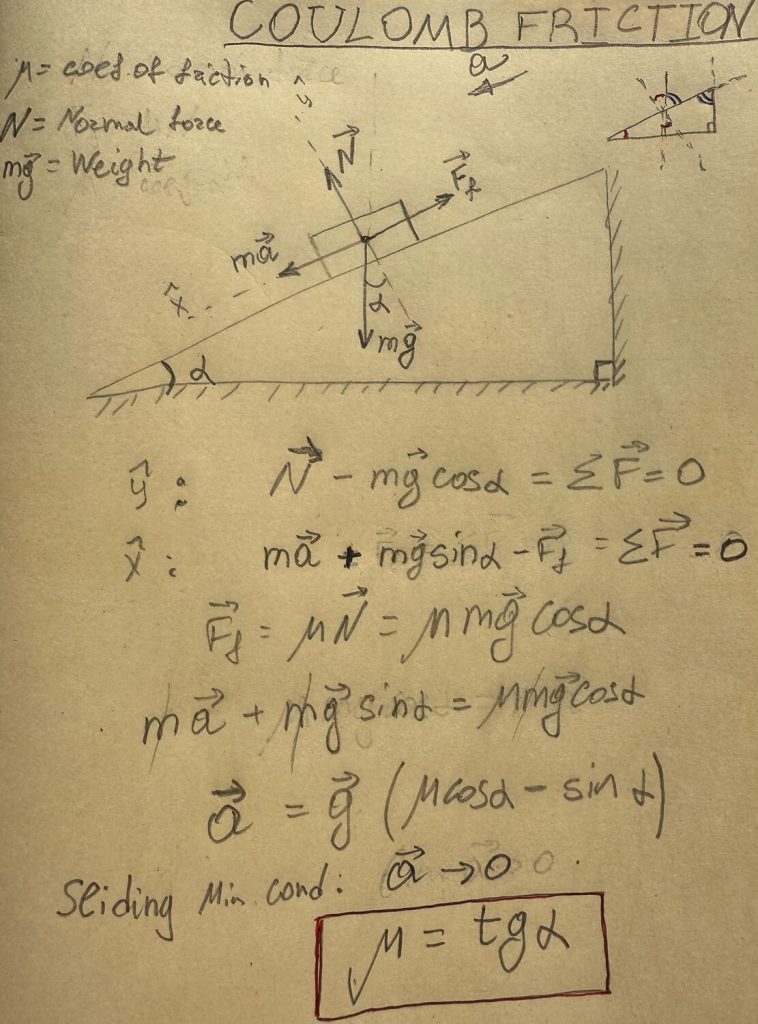 COULOMB FRICTION
μ = coef. of friction
N = Normal force
mg⃗ = Weight
a⃗
ŷ
N⃗
F⃗f
ma⃗
x̂
α
mg⃗
α
ŷ : N⃗ - mg⃗ cosα = ΣF⃗ = 0
x̂ : ma⃗ + mg⃗ sinα - F⃗f = ΣF⃗ = 0
F⃗f = μN⃗ = μmg⃗ cosα
ma⃗ + mg⃗ sinα = μmg⃗ cosα
a⃗ = g⃗ (μcosα - sinα)
Sliding Min cond: a⃗ → 0
μ = tgα